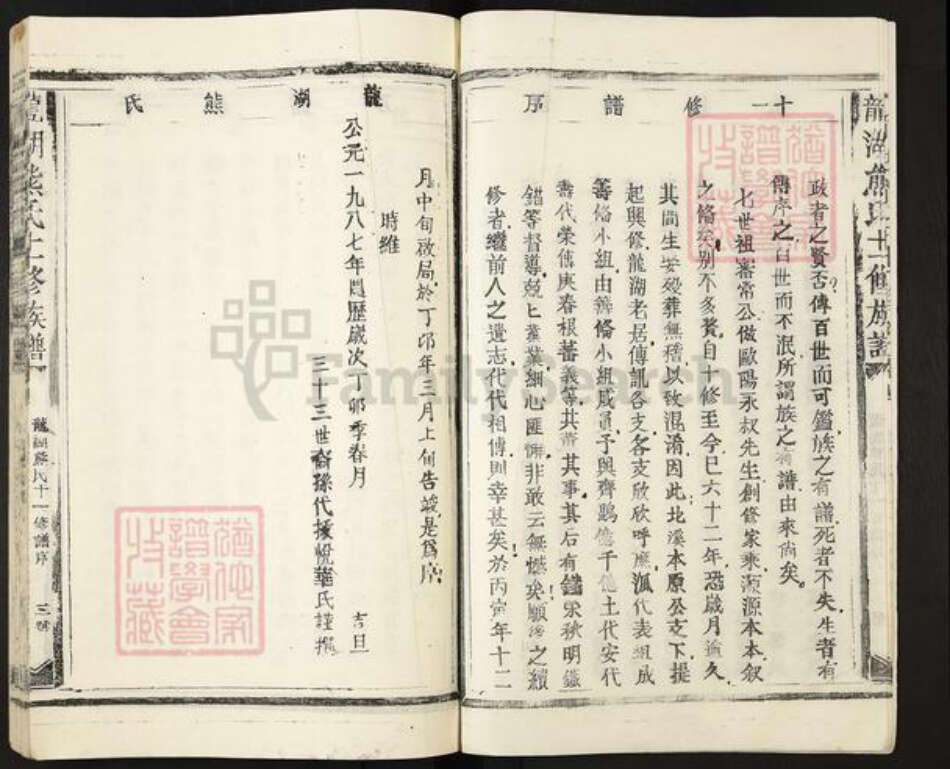 龍湖熊氏十一修族譜
十一修譜序
政者之賢否傳百世而可鑑族之有譜死者不失生者有
傳序之百世而不泯所謂族之有譜由來尚矣
七世祖審常公倣歐陽永叔先生創修家乘源源本本叙
之脩矣別不多贅自十修至今已六十二年恐歲月逾久
其間生安殁葬無稽以致混淆因此北溪本原公支下提
起與修龍湖老居傳訊各支各支欣欣呼應派代表組成
籌脩小組由籌脩小組成員予與齊鵬億千億士代安代
壽代榮傳庚春根蕃義等共其事其后有鐵宋秋明鐵
錯等督導兢兢業業細心匯 非敢云無憾矣願後之續
修者繼前人之遺志代代相傳則幸甚矣於丙寅年十二
龍湖熊氏
月中旬啟局於丁卯年三月上旬告竣是為序
時維
公元一九八七年閏歷歲次丁卯季春月 吉旦
三十三世裔孫代援悅華氏謹撰
龍湖熊氏十一修族譜
龍湖熊氏十一修譜序
三
FamilySearch
猶他家譜學會收藏
猶他家譜學會收藏